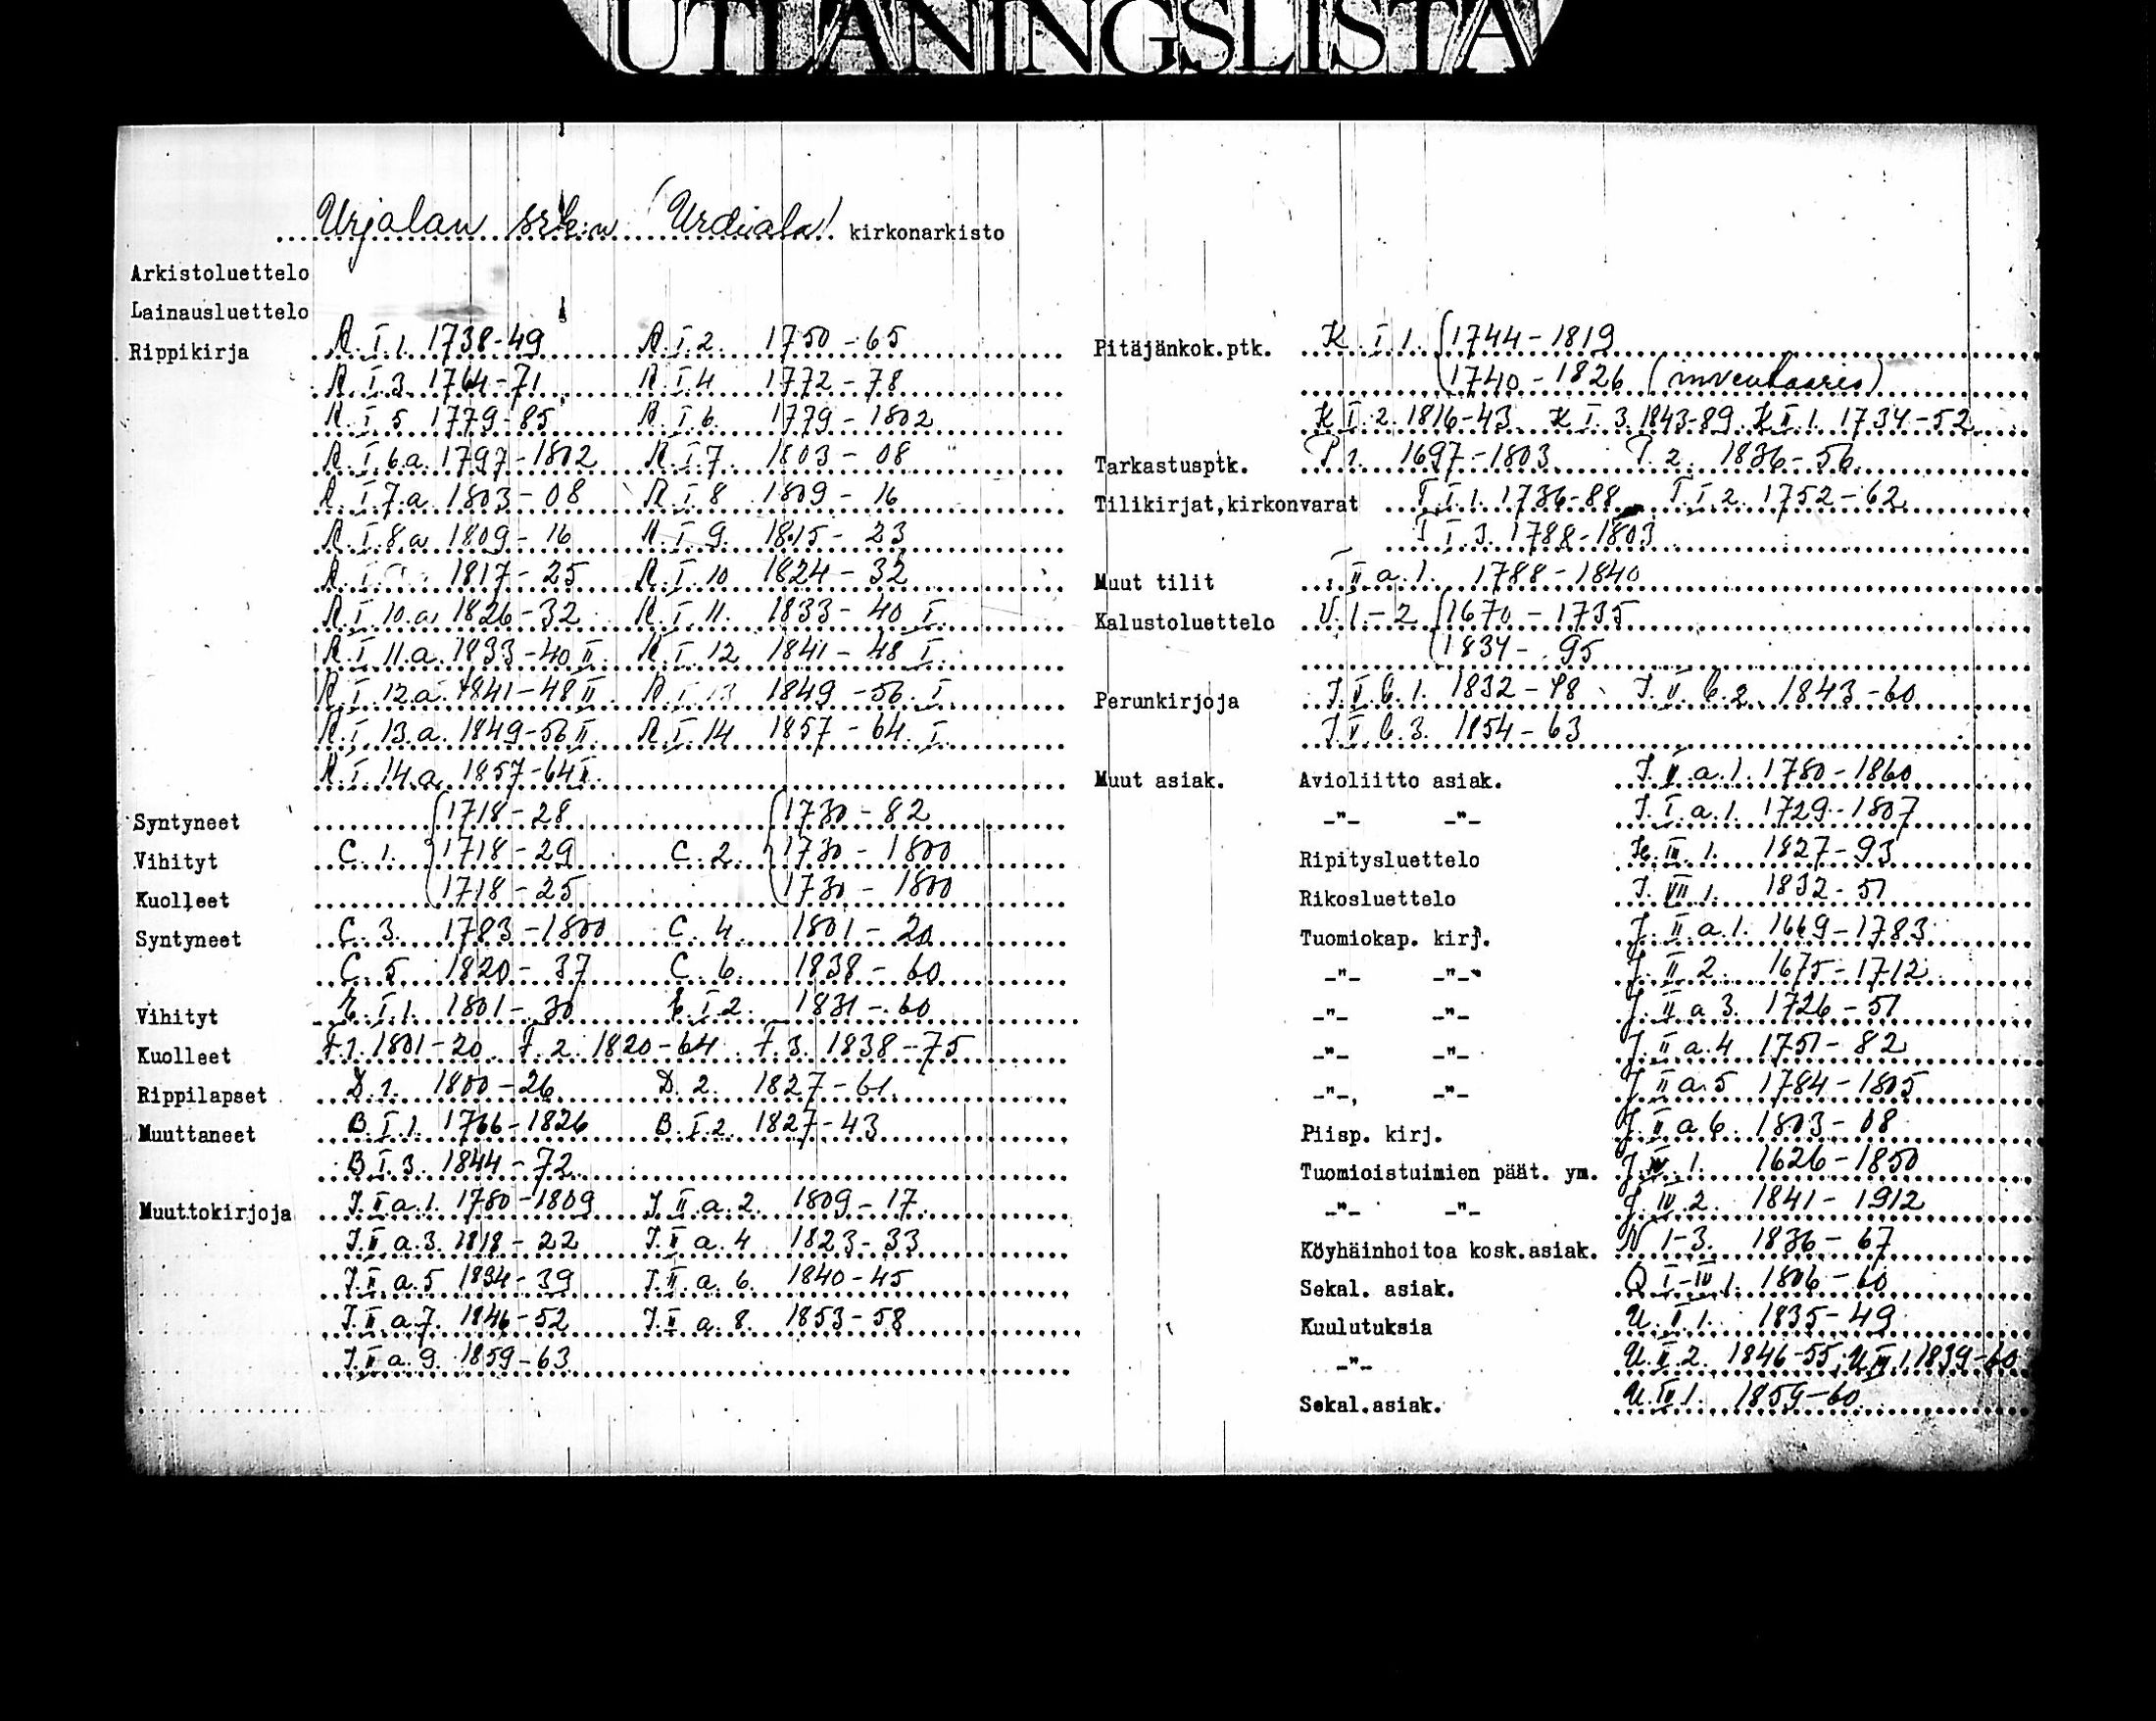 UTLÅNINGSLISTA
Urjalan srk:n (Urdiala) kirkonarkisto
Arkistoluettelo
Lainausluettelo
Rippikirja A.I.1. 1738-49 A.I.2. 1750-65
A.I.3. 1764-71 A.I.4 1772-78
A.I.5 1779-85 A.I.6. 1779-1802
A.I.6.a. 1797-1802 A.I.7. 1803-08
A.I.7.a. 1803-08 A.I.8 1809-16
A.I.8.a 1809-16 A.I.9. 1815-23
A.I. 1817-25 A.I.10 1824-32
A.I.10.a. 1826-32 A.I.11. 1833-40 I.
A.I.11.a. 1833-40 II. A.I.12 1841-48 I.
A.I.12.a. 1841-48 II A.I.13 1849-56. I.
A.I.13.a. 1849-56 II. A.I.14 1857-64. I.
A.I.14.a. 1857-64 II.
Syntyneet 1718-28 1730-82
Vihityt C.1. 1718-29 C.2. 1730-1800
Kuolleet 1718-25 1730-1800
Syntyneet C.3. 1783-1800 C.4. 1801-20
C.5 1820-37 C.6. 1838-60
Vihityt E.I.1. 1801-30 E.I.2. 1831-60
Kuolleet F.1. 1801-20. F.2. 1820-64. F.3. 1838-75
Rippilapset D.1. 1800-26 D.2. 1827-61.
Muuttaneet B.I.1. 1766-1826 B.I.2. 1827-43
B.I.3. 1844-72.
Muuttokirjoja J.II.a.1. 1780-1809 J.II.a.2. 1809-17.
J.II.a.3. 1818-22 J.II.a.4 1823-33
J.II.a.5 1834-39 J.II.a.6. 1840-45
J.II.a.7. 1846-52 J.II.a.8. 1853-58
J.II.a.9. 1859-63
Pitäjänkok.ptk. K.I.1. 1744-1819
1740-1826 (inventaario)
K I.2. 1816-43. K I.3. 1843-89. K II.1. 1734-52
Tarkastusptk. P.1. 1697-1803. P.2. 1836-56.
Tilikirjat,kirkonvarat T.I.1. 1736-88 T.I.2. 1752-62
T I.3. 1788-1803
Muut tilit II a.1. 1788-1840
Kalustoluettelo U.1-2 1670-1735
1834-95
Perunkirjoja J.V.b.1. 1832-48 J.V.b.2. 1843-60
J.V.b.3. 1854-63
Muut asiak. Avioliitto asiak. J.V.a.1. 1780-1860
-"- -"- J.I.a.1. 1729-1807
Ripitysluettelo III.1. 1827-93
Rikosluettelo J.VII.1. 1832-51
Tuomiokap. kirj. J.II.a.1. 1669-1783
-"- -"- J.II.2. 1675-1712
-"- -"- J.II a.3. 1726-51
-"- -"- J.II a.4 1751-82
-"-, -"- J.II a.5 1784-1805
Piisp. kirj. J.II a 6. 1803-08
Tuomioistuimien päät. ym. J.IV.1. 1626-1850
-"- -"- J.IV.2. 1841-1912
Köyhäinhoitoa kosk.asiak. N 1-3. 1836-67
Sekal. asiak. Q I-IV 1. 1806-60
Kuulutuksia U.II.1. 1835-49
-"- U.II.2. 1846-55, U III.1. 1839-60
Sekal.asiak. U.IV.1. 1859-60